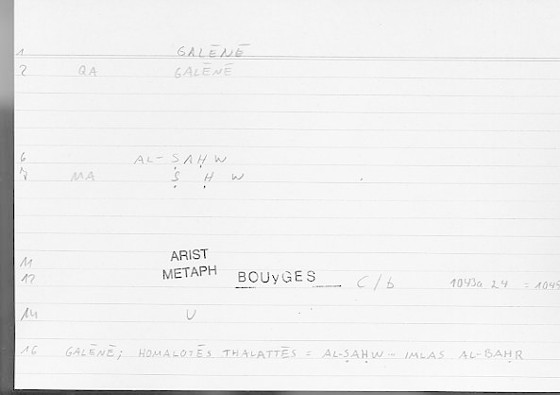 1 GALĒNĒ
2 QA GALĒNĒ
6 AL-ṢAḤW
7 MA Ṣ Ḥ W
11 ARIST
12 METAPH BOUyGES C/b 1043a 24 = 1045
14 U
16 GALĒNĒ; HOMALOTĒS THALATTĒS = AL-ṢAḤW - IMLAS AL-BAḤR